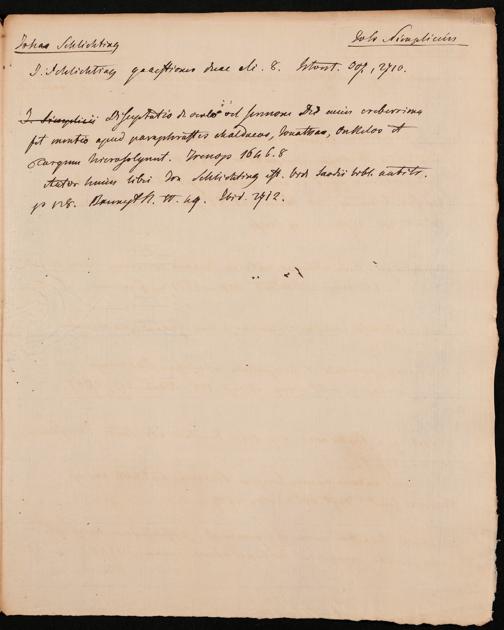 Johan Schlichting
Joh Simplicius
J. Schlichting quaestiones duae 8.
J. Simplicii Disceptatio de verbo vel sermone Dei cuius creberrima
fit mentio apud paraphrastes chaldaeos, Jonathan, Onkelos et
Targum hierosolymit. Irenop 1646. 8
Autor huius libri Jon Schlichting est. Vid Sandii bibl. antitr.
p 128. Ibid. 2712.